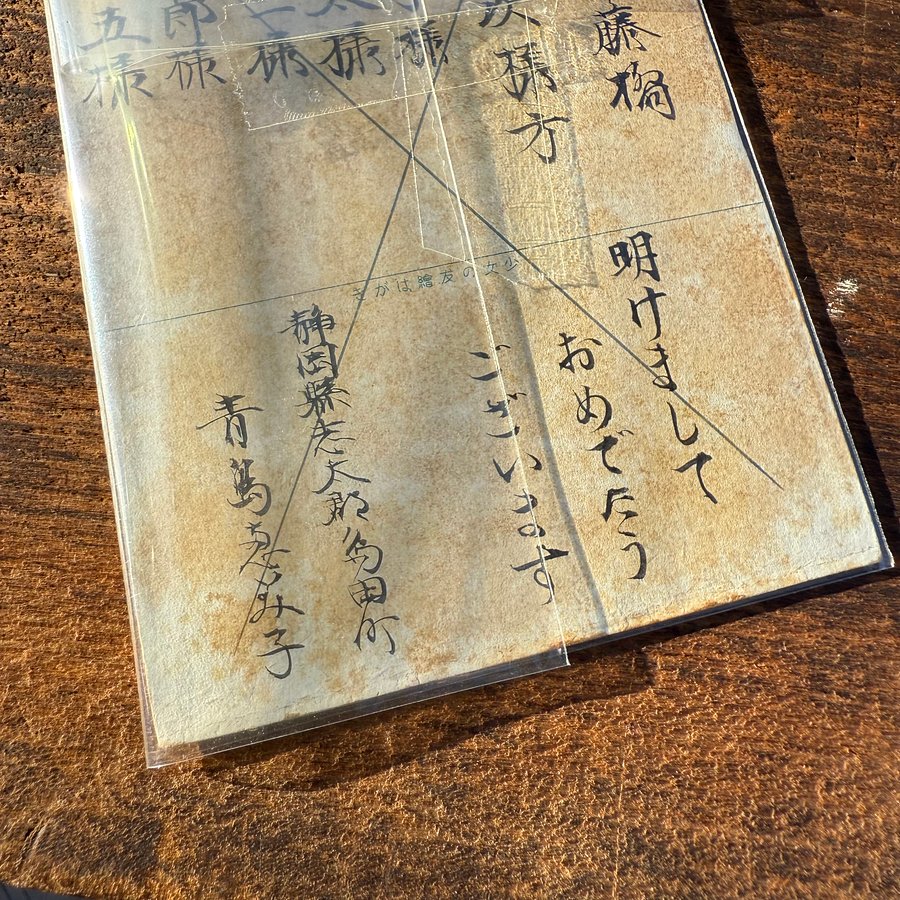 様方
様
太様
七様
郎様
五様
少女の友繪はがき
明けまして
おめでたう
ございます
静岡縣志太郡島田町
青島ゑみ子